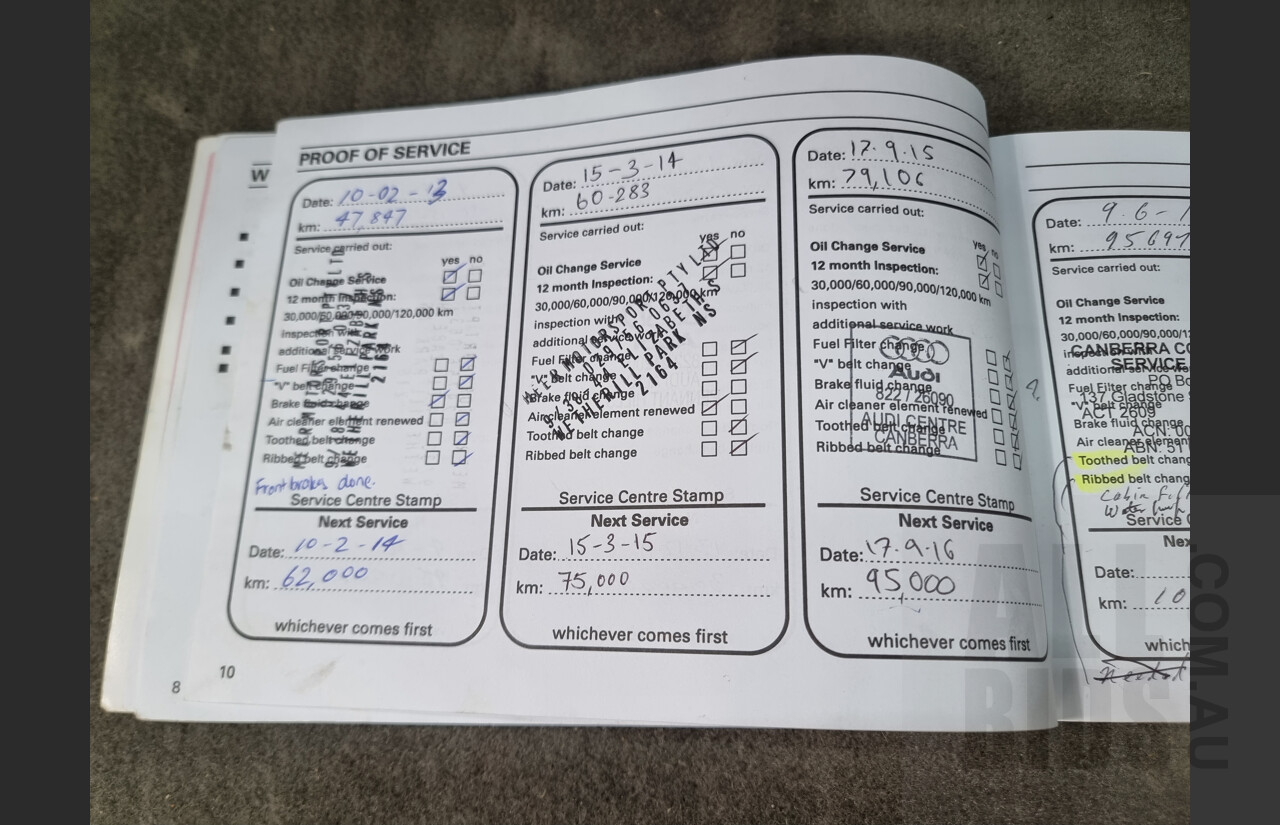 W
PROOF OF SERVICE
Date: 10-02-13
km: 47,847
Service carried out:
yes no
Oil Change Service
12 month Inspection:
30,000/60,000/90,000/120,000 km
inspection with
additional service work
Fuel Filter change
"V" belt change
Brake fluid change
Air cleaner element renewed
Toothed belt change
Ribbed belt change
2164
Front brakes done.
Service Centre Stamp
Next Service
Date: 10-2-14
km: 62,000
whichever comes first
8
10
Date: 15-3-14
km: 60-283
Service carried out:
yes no
Oil Change Service
12 month Inspection:
30,000/60,000/90,000/120,000 km
inspection with
additional service work
Fuel Filter change
"V" belt change
Brake fluid change
Air cleaner element renewed
Toothed belt change
Ribbed belt change
MOTORSPORT PTY LTD
ELIZABETH S
WETHERILL PARK NS
2164
Service Centre Stamp
Next Service
Date: 15-3-15
km: 75,000
whichever comes first
Date: 17.9.15
km: 79,106
Service carried out:
yes no
Oil Change Service
12 month Inspection:
30,000/60,000/90,000/120,000 km
inspection with
additional service work
Fuel Filter change
"V" belt change
Brake fluid change
Air cleaner element renewed
Toothed belt change
Ribbed belt change
Audi
822 / 26090
AUDI CENTRE
CANBERRA
Service Centre Stamp
Next Service
Date: 17.9.16
km: 95,000
whichever comes first
Date: 9.6-1
km: 95697
Service carried out:
Oil Change Service
12 month Inspection:
30,000/60,000/90,000/12
inspection with
additional service
Fuel Filter change
"V" belt change
Brake fluid change
Air cleaner element
Toothed belt chang
Ribbed belt chang
CANBERRA CO
SERVICE
PO Bo
137 Gladstone
ACT 2609
ACN: 00
ABN: 51
Service C
Nex
Date:
km: 10
which
Needed
ALL
BIDS
.COM.AU